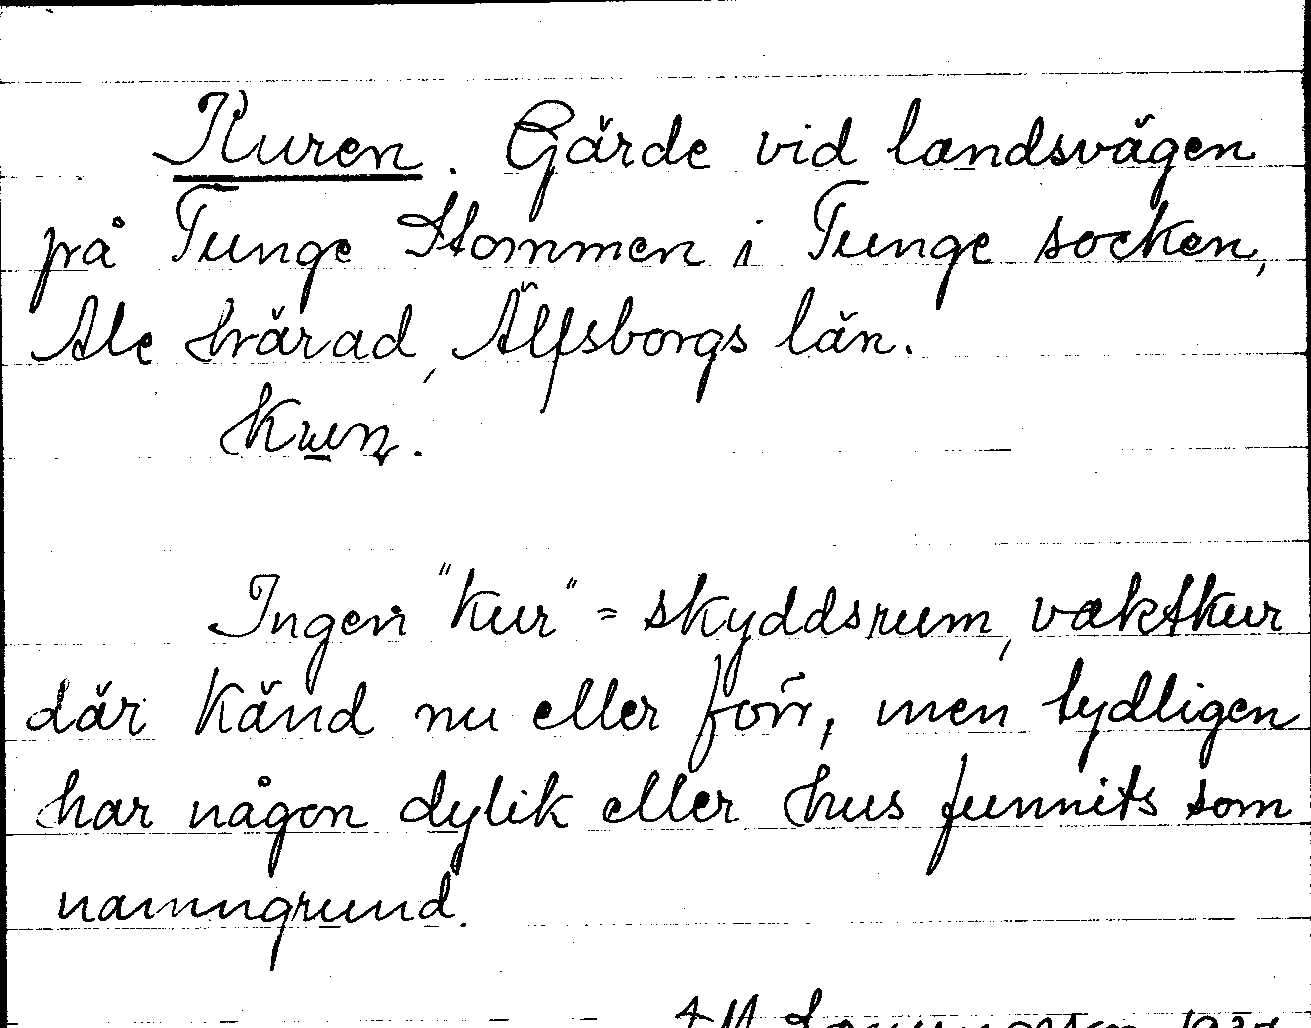 Kuren. Gärde vid landsvägen
på Tunge Stommen i Tunge socken,
Ale härad, Älfsborgs län.
Ingen "kur" = skyddsrum, vaktkur
där känd nu eller förr, men tydligen
har någon dylik eller hus funnits som
namngrund.